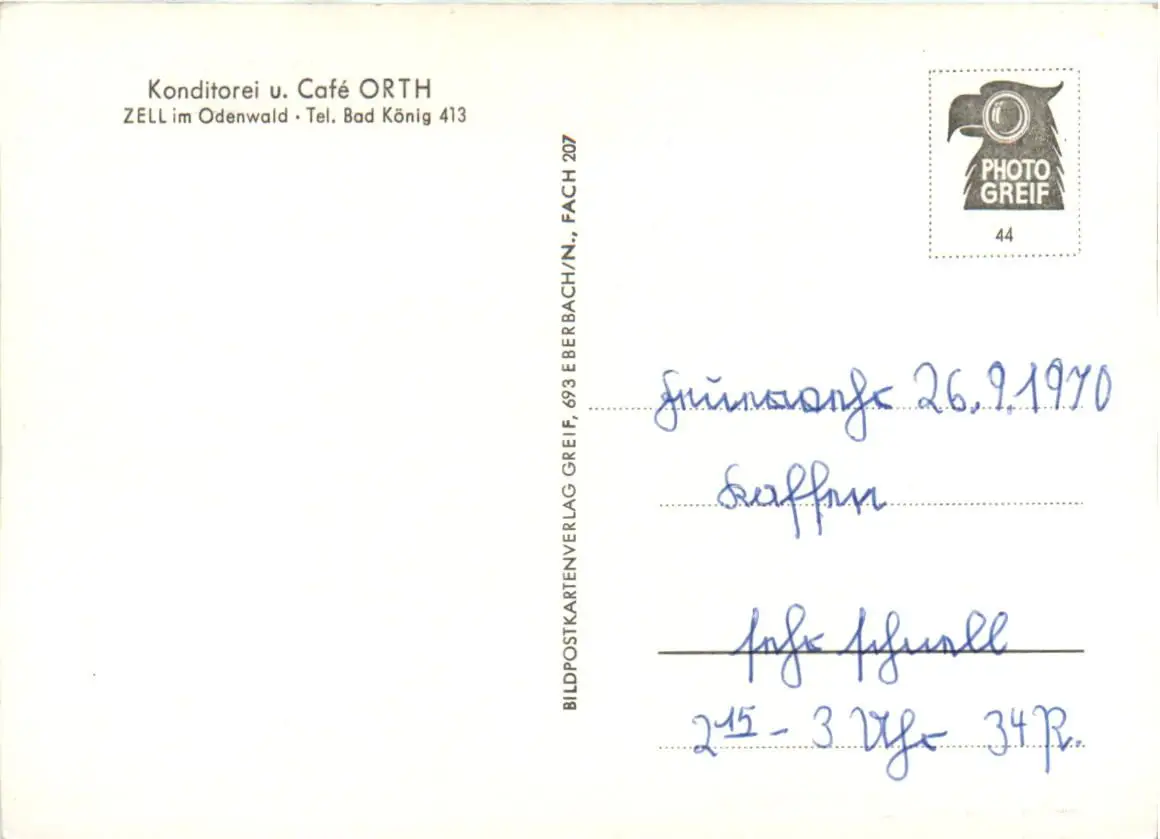 Konditorei u. Café ORTH
ZELL im Odenwald · Tel. Bad König 413
BILDPOSTKARTENVERLAG GREIF, 693 EBERBACH/N., FACH 207
PHOTO
GREIF
44
Feuerwehr 26.9.1970
Kaffee
sehr schnell
2¹⁵ - 3 Uhr 34 P.